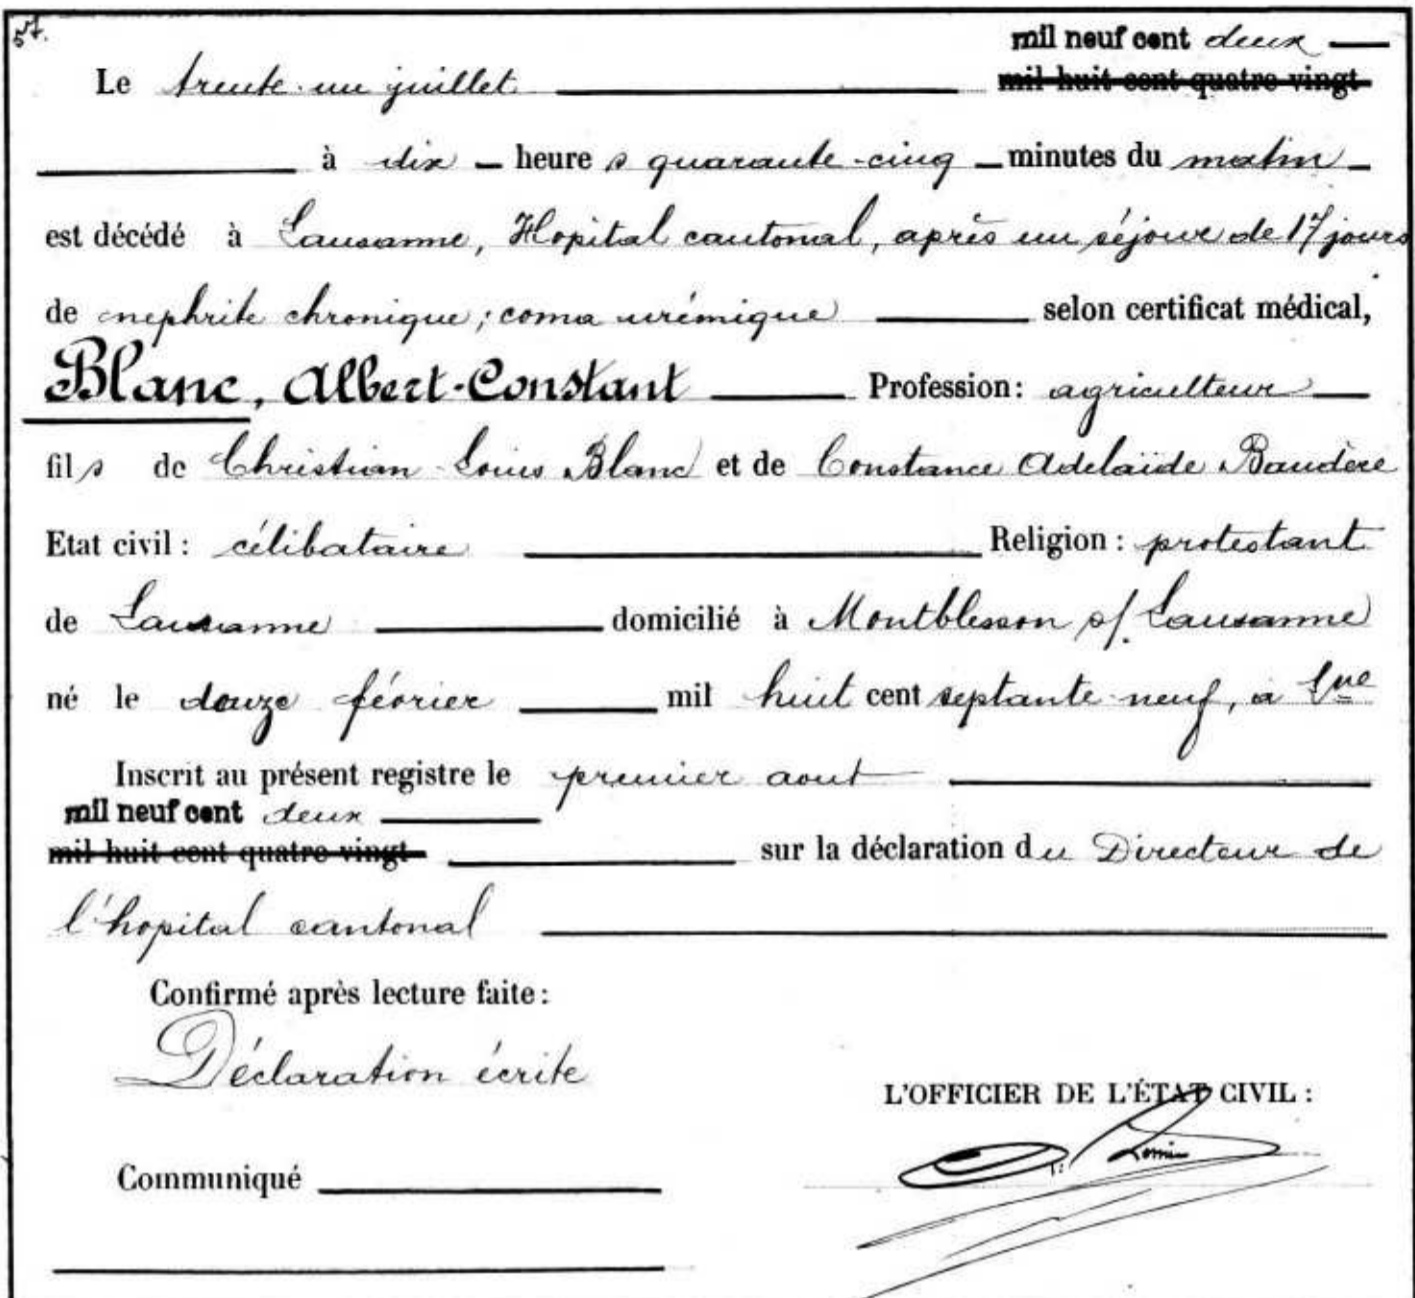 mil neuf cent deux
Le trente-un juillet mil huit cent quatre-vingt
à dix heures quarante-cinq minutes du matin
est décédé à Lausanne, Hopital cantonal, après un séjour de 17 jours
de nephrite chronique; coma urémique selon certificat médical,
Blanc, Albert-Constant Profession: agriculteur
fils de Christian-Louis Blanc et de Constance Adelaïde Baudère
Etat civil: célibataire Religion: protestant
de Lausanne domicilié à Montblesson s/ Lausanne
né le douze février mil huit cent septante-neuf, à Lne
Inscrit au présent registre le premier aout
mil neuf cent deux
mil huit cent quatre-vingt- sur la déclaration du Directeur de
l'hopital cantonal
Confirmé après lecture faite:
Déclaration écrite
L'OFFICIER DE L'ÉTAT CIVIL:
Communiqué